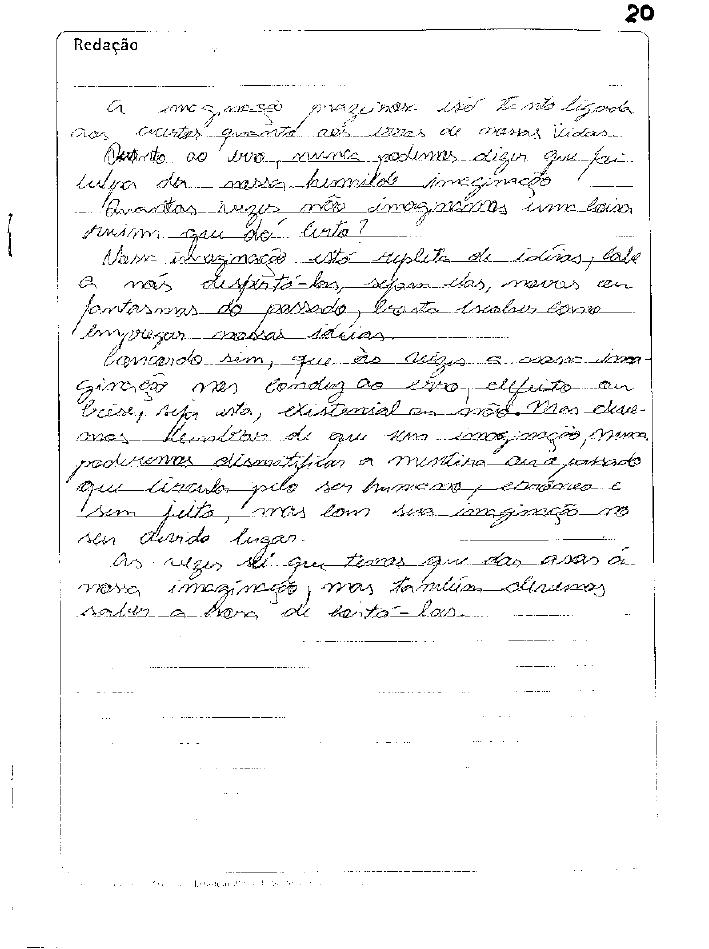 20
Redação
A imaginação está tanto ligada
aos acertos quanto aos erros de nossas vidas
Quanto ao erro, nunca podemos dizer que foi
culpa da nossa humilde imaginação
Quantas vezes não imaginamos uma coisa
ruim que dá certo?
Nossa imaginação está repleta de idéias, cabe
a nós despertá-las, sejam elas, novas ou
fantasmas do passado, basta escolher como
empregar nossas idéias.
Concordo sim, que às vezes a nossa ima-
ginação nos conduz ao erro, defeito ou
seja esta, existencial ou não. Mas deve-
mos lembrar de que sem imaginação, nunca
poderemos desmistificar a mentira ou o passado
que circula pelo ser humano, errôneo e
sem jeito, mas com sua imaginação no
seu devido lugar.
As vezes sei que temos que dar asas à
nossa imaginação, mas também devemos
saber a hora de cortá-las.